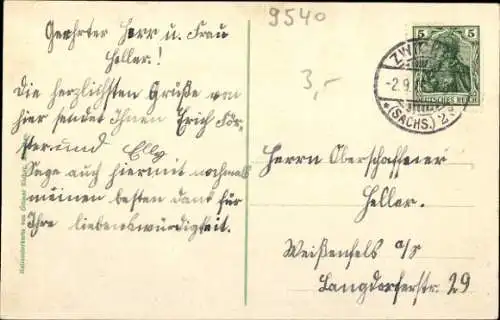 9540
Geehrter Herr u. Frau
Heller.!
Die herzlichsten Grüße von
hier sendet Ihnen Erich För-
ster und Elly
Sage auch hiermit nochmals
meinen besten Dank für
Ihre liebenswürdigkeit.
3,-
5 5
DEUTSCHES REICH
ZWICK
-2.9.
*(SACHS.) 2
Herrn Oberschaffener
Heller.
Weißenfels a/S
Langdorferstr. 29